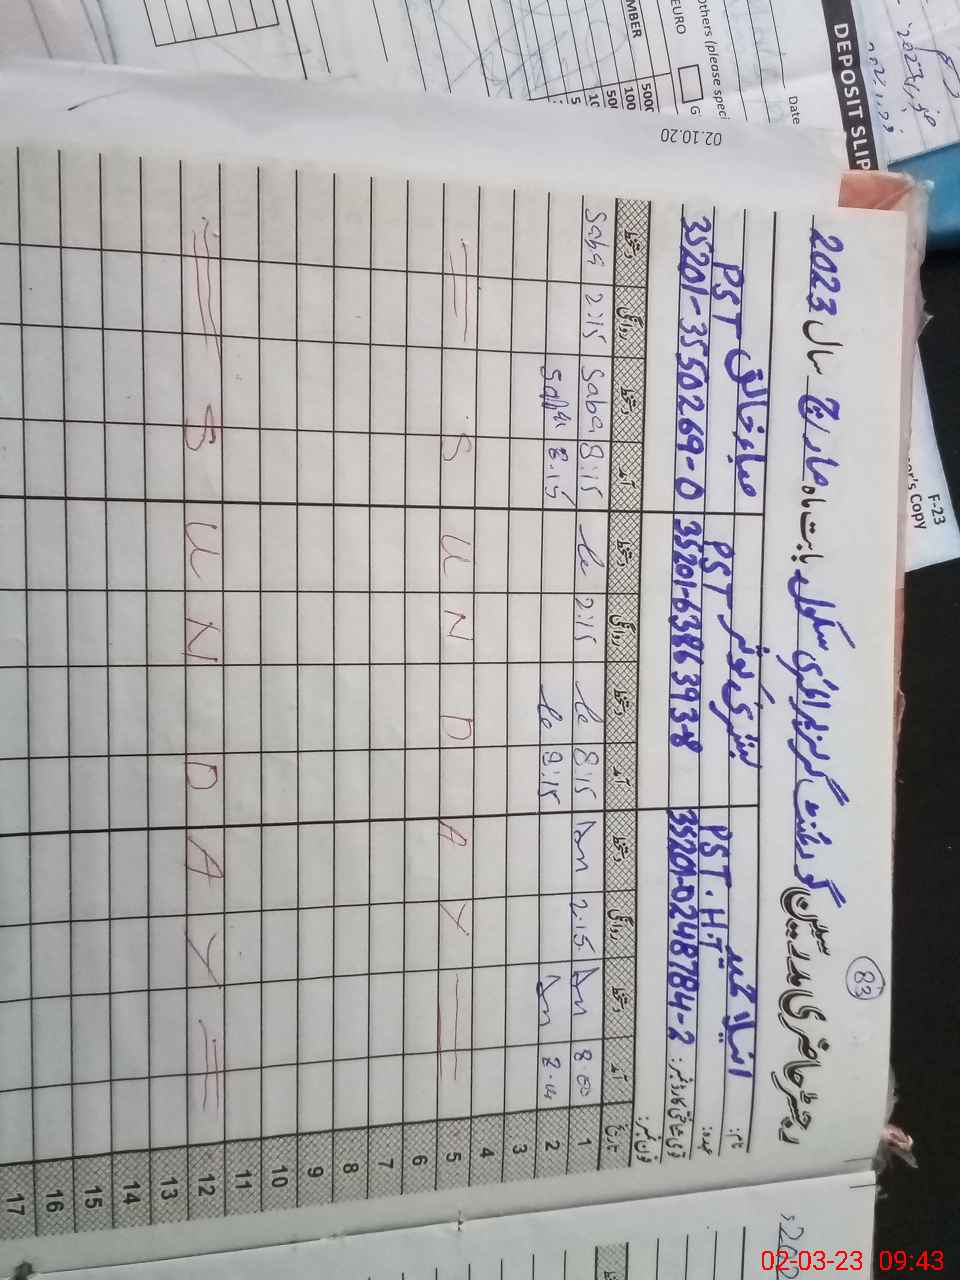 83
رجسٹر حاضری مدرسین گورنمنٹ گرلز پرائمری سکول بابت ماہ مارچ سال 2023
نام: انیلا مجید بشریٰ کوثر صباء خالق
عہدہ: PST.HT PST PST
قومی شناختی کارڈ نمبر: 35201-0248784-2 35201-6386393-8 35201-3550269-0
فون نمبر:
تاریخ آمد دستخط روانگی دستخط آمد دستخط روانگی دستخط آمد دستخط روانگی دستخط
1 8:00 An 2:15 An 8:15 2:15 8:15 Saba 2:15 Saba
2 An 8:15 8:15 Saba
3
4
5 = S U N D A Y =
6
7
8
9
10
11
12 = S U N D A Y =
13
14
15
16
17
02.10.20
DEPOSIT SLIP
Date
Others (please speci
EURO
MBER
5000
100
F-23
er's Copy
02-03-23 09:43